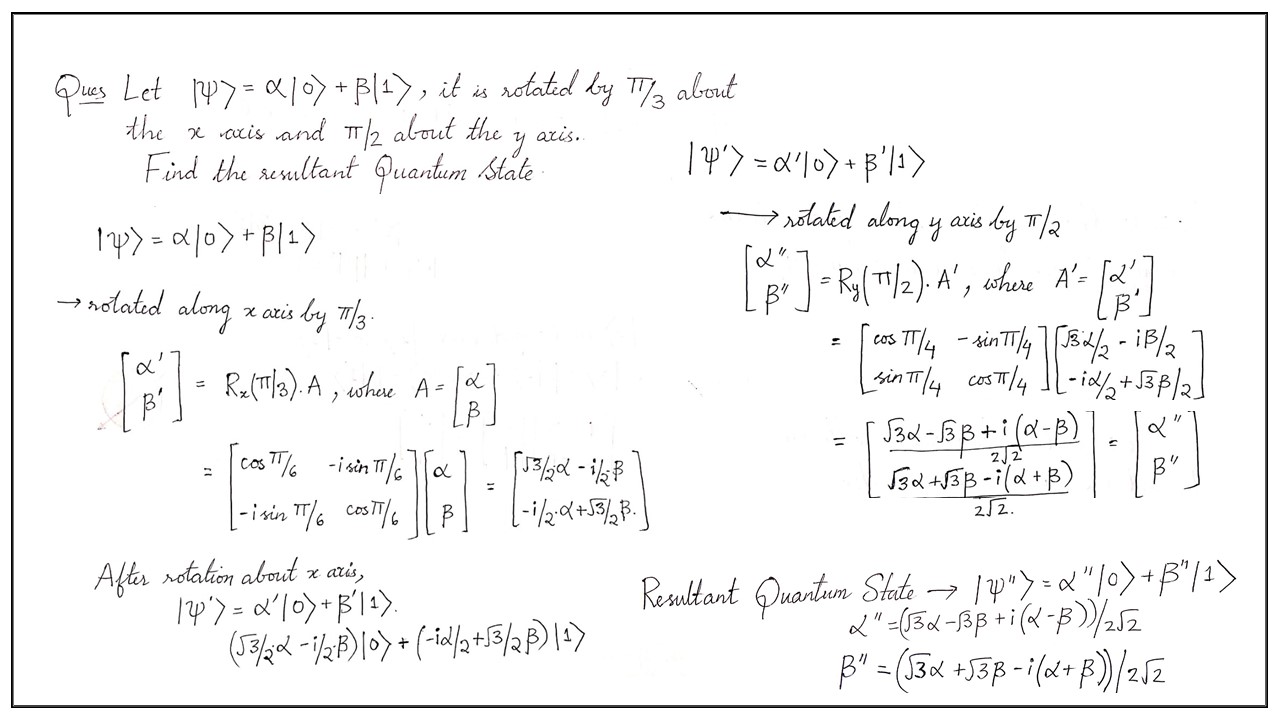 Ques Let |ψ⟩ = α|0⟩ + β|1⟩, it is rotated by π/3 about
the x axis and π/2 about the y axis.
Find the resultant Quantum State.
|ψ⟩ = α|0⟩ + β|1⟩
→ rotated along x axis by π/3.
[α' β'] = Rx(π/3). A, where A = [α β]
= [cos π/6 -i sin π/6
-i sin π/6 cos π/6] [α β] = [√3/2.α - i/2.β
-i/2.α + √3/2 β.]
After rotation about x axis,
|ψ'⟩ = α'|0⟩ + β'|1⟩.
(√3/2.α - i/2.β)|0⟩ + (-iα/2 + √3/2 β)|1⟩
|ψ'⟩ = α'|0⟩ + β'|1⟩
→ rotated along y axis by π/2
[α'' β''] = Ry(π/2). A', where A' = [α' β']
= [cos π/4 - sin π/4
sin π/4 cos π/4] [√3α/2 - iβ/2
-iα/2 + √3β/2]
= [(√3α - √3β + i(α - β))/2√2
(√3α + √3β - i(α + β))/2√2.] = [α'' β'']
Resultant Quantum State → |ψ''⟩ = α''|0⟩ + β''|1⟩
α'' = (√3α - √3β + i(α - β))/2√2
β'' = (√3α + √3β - i(α + β))/2√2